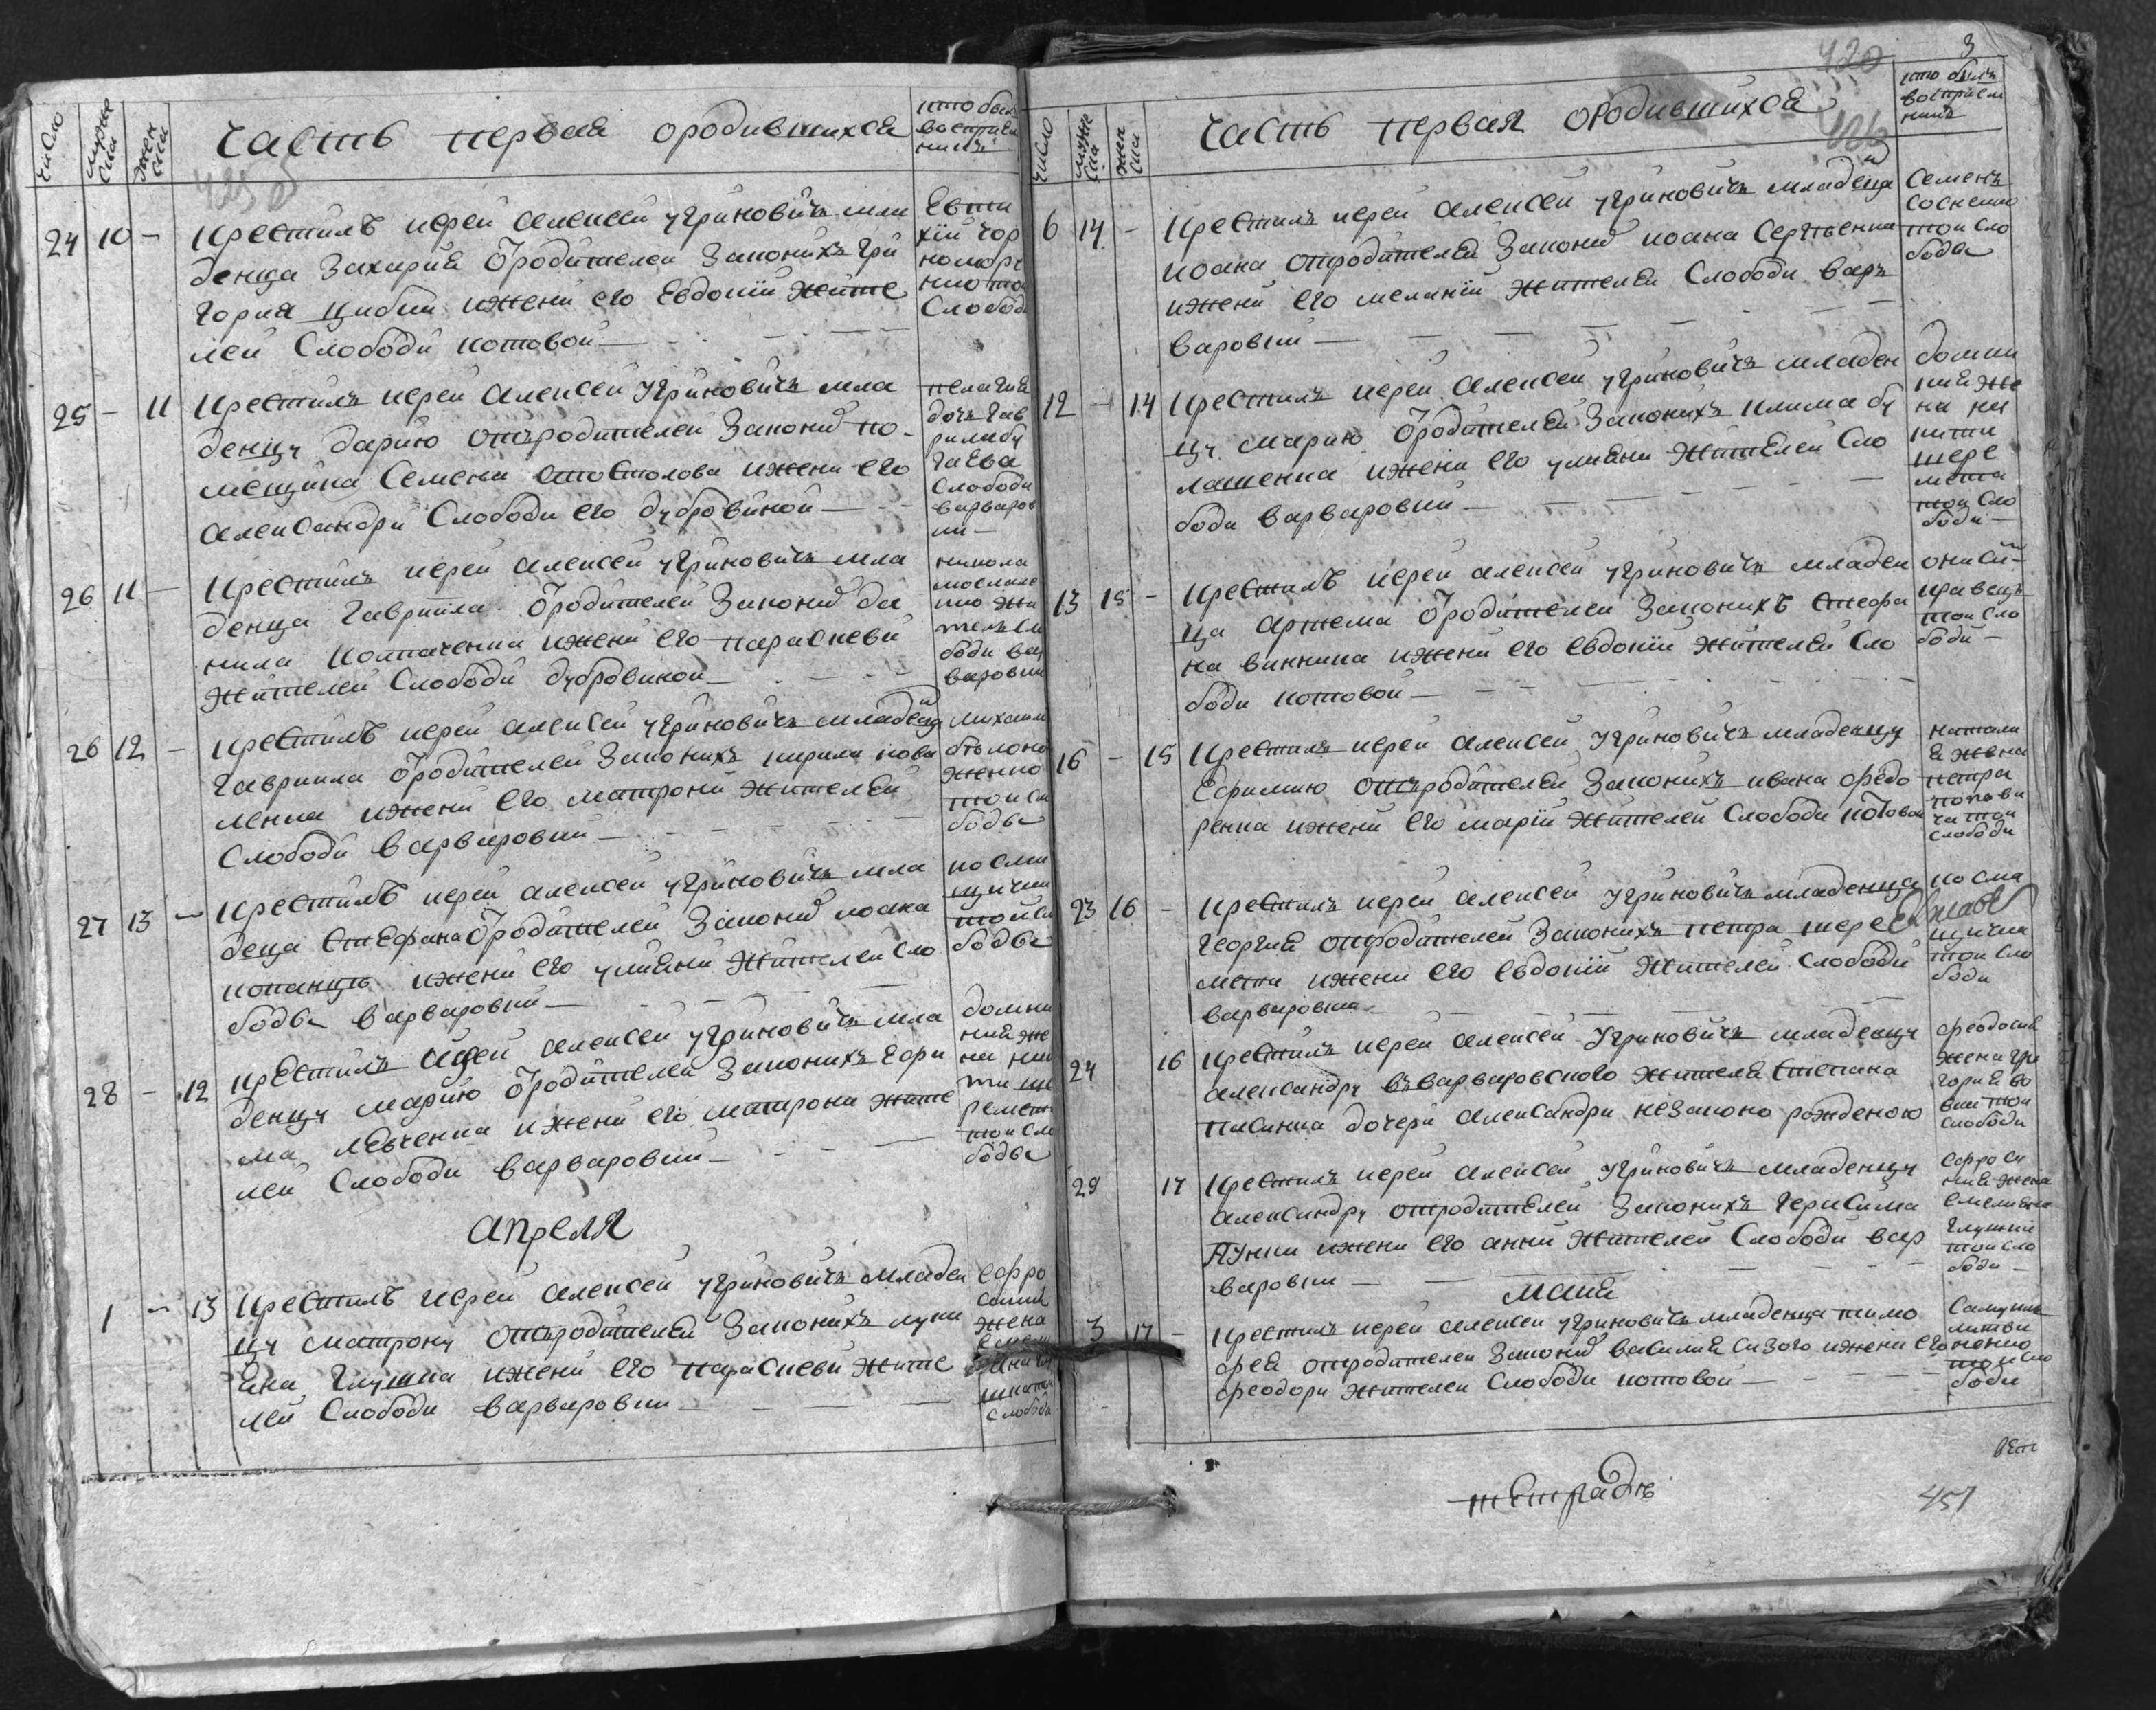 число
мужеска
женска
Часть первая ородившихся
кто былъ восприемникъ
24 10 —
Крестилъ иерей алексей угриновичъ мла
денца Захария Öродителей Законихъ гри
гория цибки ижени его Евдокїи жите
лей Слободи котовой —
Евти
хїй чор
номоре
Слобод
25 — 11
Крестилъ иерей алексей угриновичъ мла
денцу дарию отъродителей Законих по-
мещика Семена апостолова ижени его
александри Слободи его дубровиной —
пелагия
дочь гав
рила бу
гаева
Слободи
варваров
ки —
26 11 —
Крестилъ иерей алексей угриновичъ мла
денца гавриила Öродителей Законих да
нила колпаченка ижени его параскеви
жителей Слободи дубровиной —
никола
жи
тель сло
боди вар
варовки
26 12 —
Крестилъ иерей алексей угриновичъ младенца
гавриила Öродителей Законихъ кирила кова
ленка ижени его матрони жителей
Слободи варваровки —
михаил
той сло
боди
27 13 —
Крестилъ иерей алексей угриновичъ мла
деца стефана Öродителей Законих иоана
копанци ижени его улияни жителей Сло
боди варваровки —
косми
щички
той сло
боди
28 — 12
Крестилъ иерей алексей угриновичъ мла
денцу марию Öродителей Законихъ Ефи
ма левченка ижени его матрони жите
лей Слободи варваровки —
домни
кия же
на ник
ти ше
ремет
той сло
боди
апреля
1 — 13
Крестилъ иерей алексей угриновичъ младен
цу матрону отъродителей Законихъ луки
яна глушка ижени его параскеви жите
лей Слободи варваровки —
Ефро
синия
жена
Слободи
3
420
число
мужеска
женска
Часть первая ородившихся
кто былъ
восприем
никъ
6 14 —
Крестилъ иерей алексей угриновичъ младенца
иоана отродителей Законих иоана Сергиенка
ижени его меланїи жителей Слободи вар
варовки —
Семенъ
Сосненко
той сло
боди
12 — 14
Крестилъ иерей алексей угриновичъ младен
цу марию Öродителей Законихъ клима бу
лашенка ижени его улияни жителей Сло
боди варваровки —
домни
кия же
на ни
кити
шере
мета
той сло
боди —
13 15 —
Крестилъ иерей алексей угриновичъ младен
ца артема Öродителей Законихъ стефа
на винника ижени его евдокїи жителей Сло
боди котовой —
онисий
кравецъ
той сло
боди —
16 — 15
Крестилъ иерей алексей угриновичъ младенцу
Ефимию отъродителей Законихъ ивана федо
ренка ижени его марїи жителей Слободи котовой
натали
я жена
петра
попови
ча той
слободи
23 16 —
Крестилъ иерей алексей угриновичъ младенца
георгия отродителей Законихъ петра шере
мети ижени его евдокїи жителей Слободи
варваровки —
косма
щичка
той сло
боди
24 16
Крестилъ иерей алексей угриновичъ младенцу
александру въварваровского жителя Степана
дочери александри незаконо рожденою
феодосия
жена гри
гория во
вки той
слободи
29 17
Крестилъ иерей алексей угриновичъ младенцу
александру отродителей Законихъ герасима
лунки ижени его анни жителей Слободи вар
варовки —
Ефроси
ния жена
емелияна
глушка
той сло
боди —
мая
3 17 —
Крестилъ иерей алексей угриновичъ младенца тимо
фея отродителей Законих василия Сизого ижени его
феодори жителей Слободи котовой —
Самуил
литви
ненко
той сло
боди
тетрадь
451